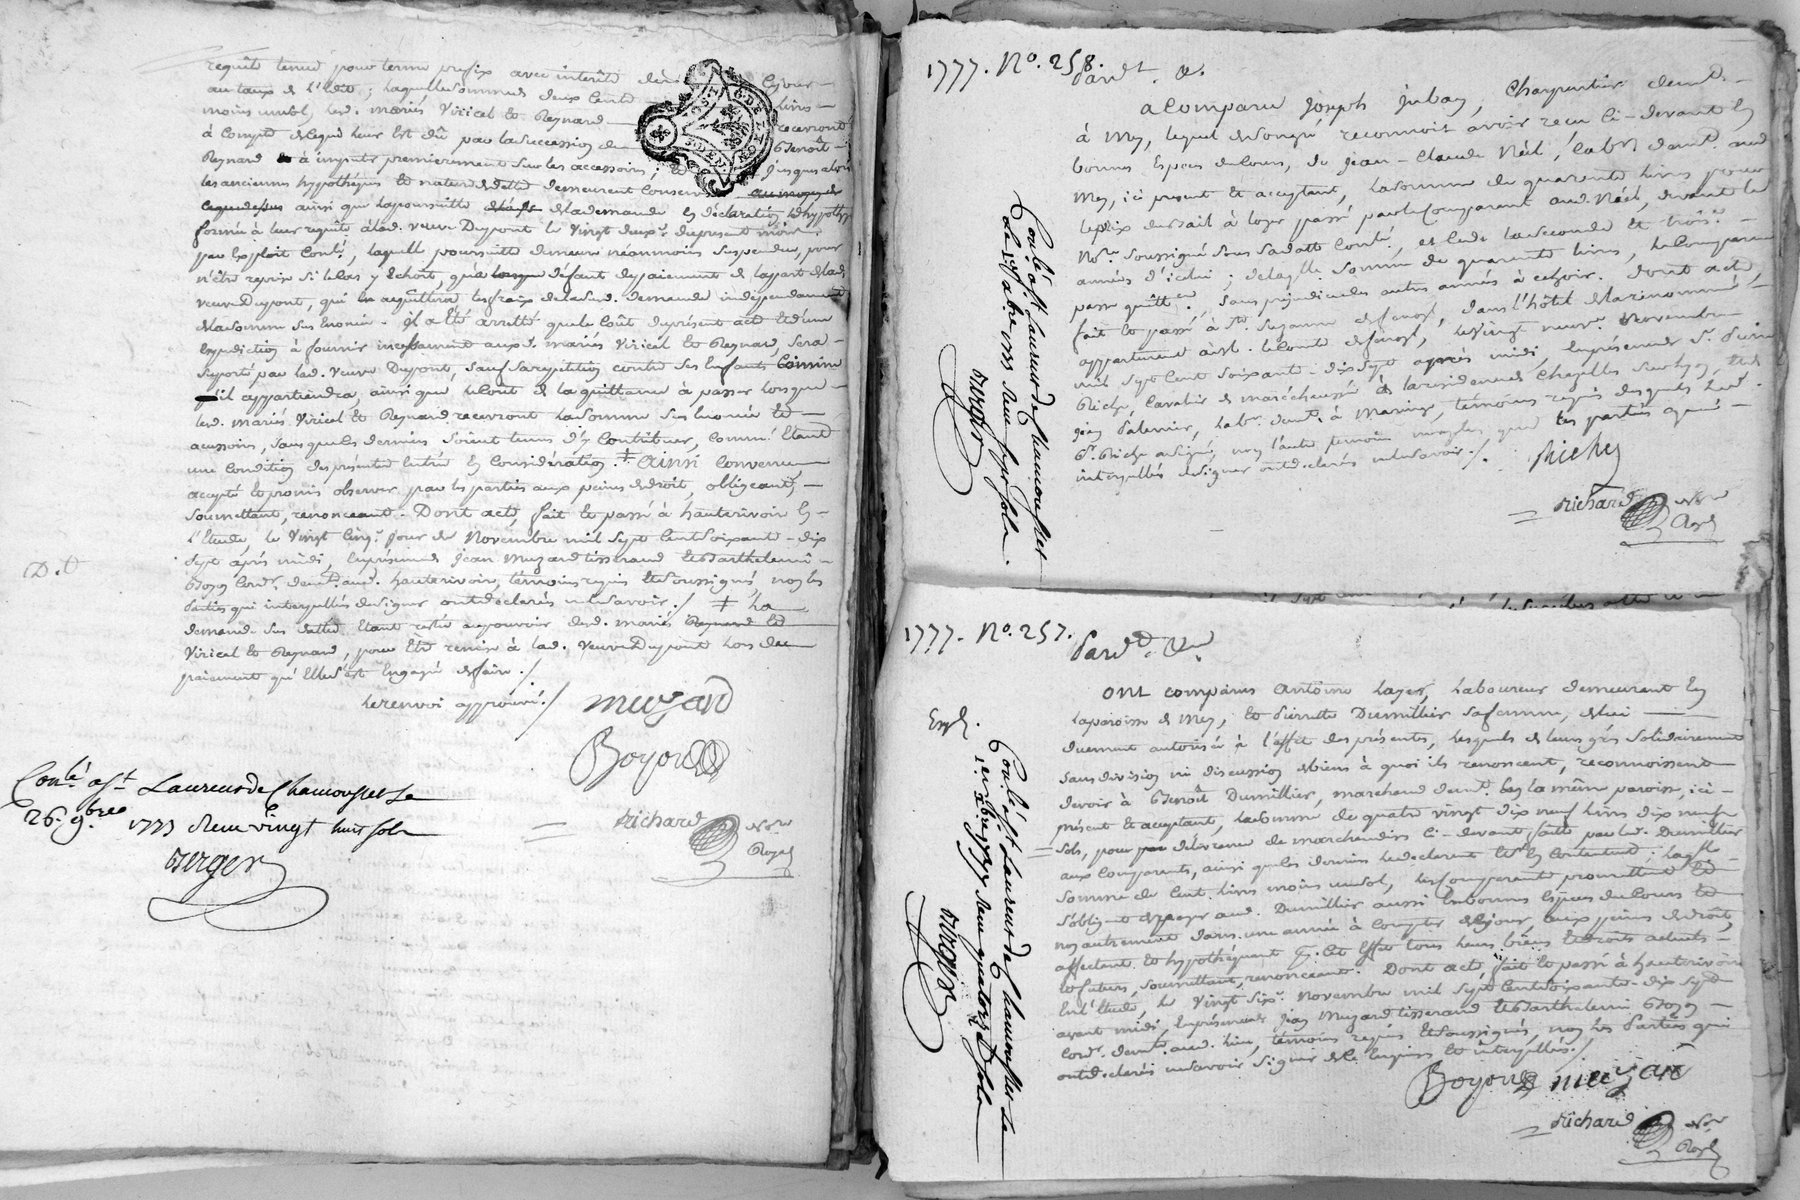 requête tenue pour terme prefix avec interêts
au taux de l'Edit ; laquelle somme de deux Cent livres
moins un sol, lesd. mariés Virieal et Reynard recevront
à Compte de ce qui leur est dû par la succession de Benoît
Reynard à imputer premierement sur les accessoires, jusques alors
les anciennes hypothéques et nature de dette demeurent
ainsi que la poursuitte de la demande en déclaration d'hypotheque
formée à leur requête à lad. veuve Dupont le vingt deux du present mois
par Exploit Conlé, laquelle poursuitte demeure néanmoins suspendue, pour
n'être reprise si le cas y échoit, qu'à défaut de paiement de la part de lad.
veuve Dupont, qui acquittera les frais de la susd. demande indépendament
de la somme sus énoncée. Il a été arretté que le coût du présent acte et d'une
Expedition à fournir incessament auxd. mariés Virieal et Reynard, sera
suporté par lad. veuve Dupont, sauf sa repetition contre ses Enfants Comme
il appartiendra, ainsi que le cout de la quittance à passer lorsque
lesd. mariés Virieal et Reynard recevront la somme sus énoncée et
accessoires, sans que les derniers soient tenus d'y Contribuer, comme étant
une condition des présentes entrée en Considération. ‡ Ainsi convenu
accepté et promis observer par les parties aux peines de droit, obligeant,
soumettant, renonceant. Dont acte, fait et passé à hauterivoire en
l'étude, le vingt cinq jour de Novembre mil sept cent soixante-dix
sept après midi, En présence de Jean Muzard tisserand et Barthelemi
Boyon Cordr. demt. aud. hauterivoire, témoins requis et soussignés, non les
Parties qui interpellées de signer ont declaré ne le savoir ./. ‡ La
demande sus dattée étant restée au pouvoir desd. mariés Reynard et
Virieal et Reynard, pour être remise à lad. veuve Dupont lors du
paiement qu'elle s'est Engagée de faire ./
Le renvoi approuvé ./ muzard
Boyon
D. t
Conlé à St. Laurent de Chamousset Le
26. 9bre 1777 Reçu vingt huit sols
Berger
Richard Nre Royal
1777. N°. 258.
Pardt. &.
A Comparu Joseph Jubay, Charpentier demt.
à Mey, lequel de son gré reconnoit avoir reçu ci-devant en
bonnes Espèces de Cours, de Jean-Claude Néel, labr. demt. aud.
Mey, ici present et acceptant, la somme de quarante livres pour
le prix du bail à loyer passé par le Comparant aud. Néel, devant le
Nre. soussigné sous sa datte Conlé, et ce de la seconde et troise.
années d'icelui ; de laquelle somme de quarante livres, le Comparant
passe quittce., sans préjudice des autres années à echoir. Dont acte,
fait et passé à Ste. Suzanne, dans l'hôtel de la renommée
appartenant le vingt neuf Novembre
mil sept cent soixante-dix sept après midi, En présence de Sr. Pierre
Riche, Cavalier de maréchaussée à la residence de Chazelles sur Lyon, et de
Jean Palmier, labr. demt. à Maringe, témoins requis desquels led.
Sr. Riche a signé, non l'autre temoin non plus que les parties qui
interpellés de signer ont declaré ne le savoir ./.
Riche
Richard Nre Royal
Conlé à St. Laurent de Chamousset
Le 1er. Xbre 1777 Reçu sept sols
Berger
1777. N°. 257.
Pardt. &.
Expé.
Ont comparus Antoine Layer, Laboureur demeurant en
la paroisse de Mey, et Pierrette Dumillier sa femme, de lui
duement autorisée à l'effet des présentes, lesquels de leurs grés solidairement
sans division ni discussion de biens à quoi ils renoncent, reconnoissent
devoir à Benoît Dumillier, marchand demt. en la même paroisse, ici
présent et acceptant, la somme de quatre vingt dix neuf livres dix neuf
sols, pour délivrance de marchandises ci-devant faitte par led. Dumillier
aux Comparants, ainsi que les derniers le declarent et s'en contentent ; laqlle.
somme de cent livres moins un sol, les Comparants promettent et
s'obligent de payer aud. Dumillier aussi en bonnes Espèces de Cours et
non autrement dans une année à compter de ce jour, aux peines de droit,
affectant et hypothéquant à cet effet tous leurs biens et droits actuels
et futurs, soumettant, renonceant. Dont acte, fait et passé à hauterivoire
En l'étude, le vingt six Novembre mil sept cent soixante-dix sept
avant midi, En présence de Jean Muzard tisserand et Barthelemi Boyon
cordr. demt. aud. lieu, temoins requis et soussignés, non les Parties qui
ont declaré ne savoir signer de ce enquises et interpellées ./
Boyon muzard
Richard Nre Royal
Conlé à St. Laurent de Chamousset Le
1er. Xbre 1777 Reçu quatorze sols
Berger